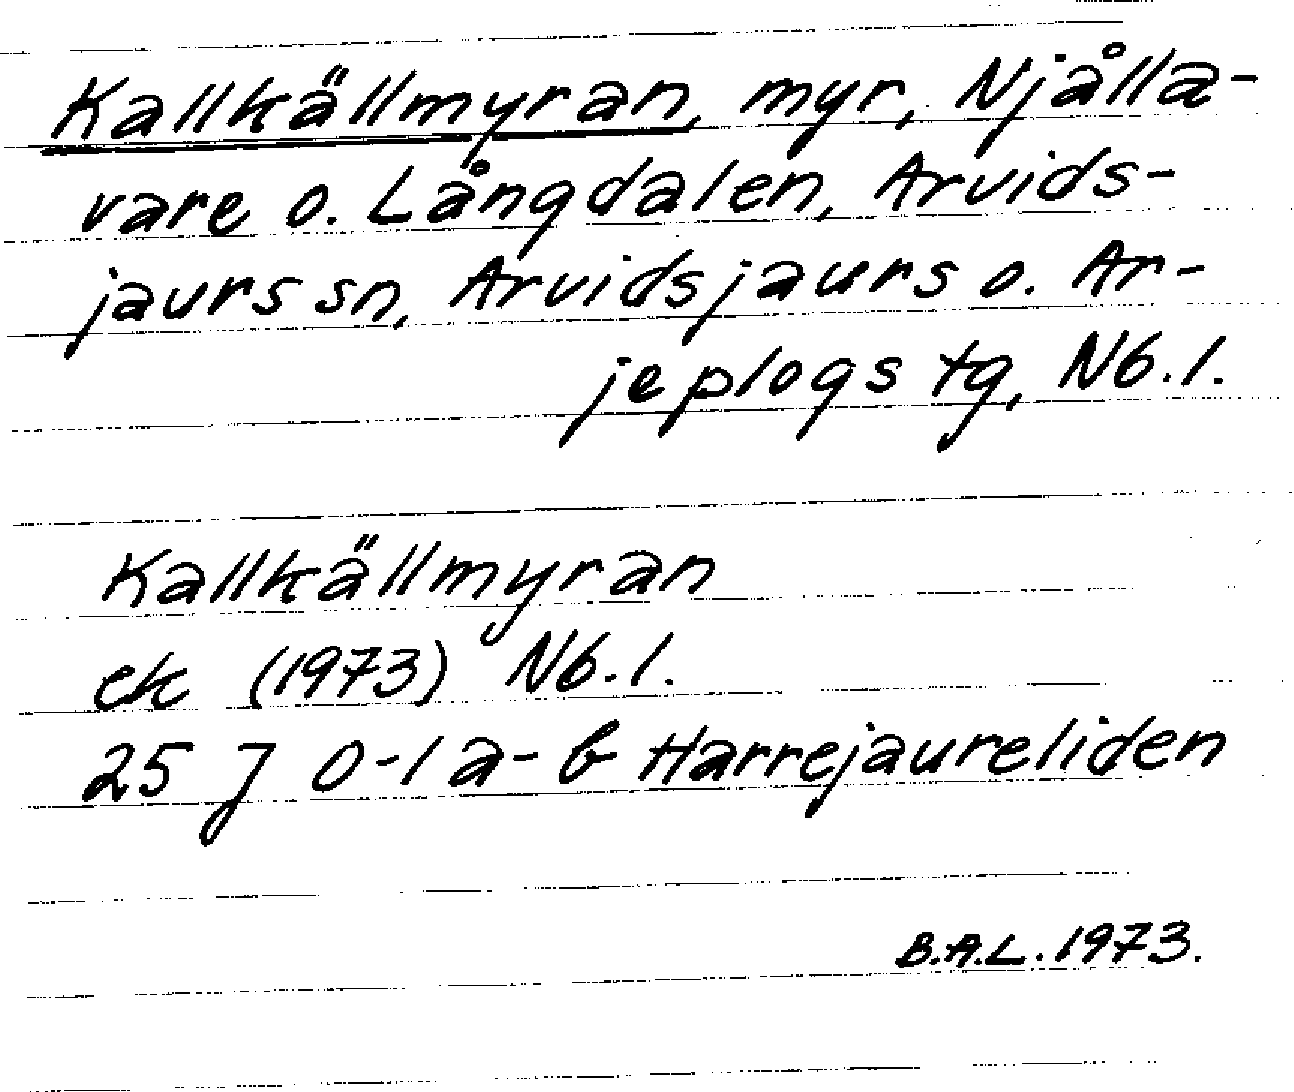 Kallkällmyran, myr, Njålla-
vare o. Långdalen, Arvids-
jaurs sn, Arvidsjaurs o. Ar-
jeplogs tg, Nb.l.
Kallkällmyran
ek (1973) Nb.l.
25 J 0-1 a-b Harrejaureliden
B.A.L. 1973.